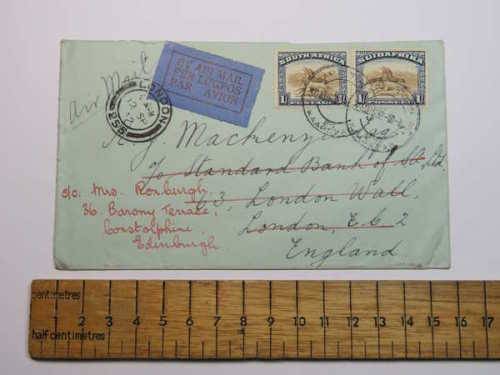 Air Mail
BY AIR MAIL
PER LUGPOS
PAR AVION
SOUTH AFRICA
1/
POSTAGE
SUIDAFRIKA
1/
LONDON
255
A. J. Mackenzie
c/o Standard Bank of SA Ltd.
63, London Wall
London, E.C 2
England
c/o. Mrs. Roxburgh,
36 Barony Terrace,
Corstorphine
Edinburgh
centimetres
1 2 3 4 5 6 7 8 9 10 11 12 13 14 15 16 17
half centimetres